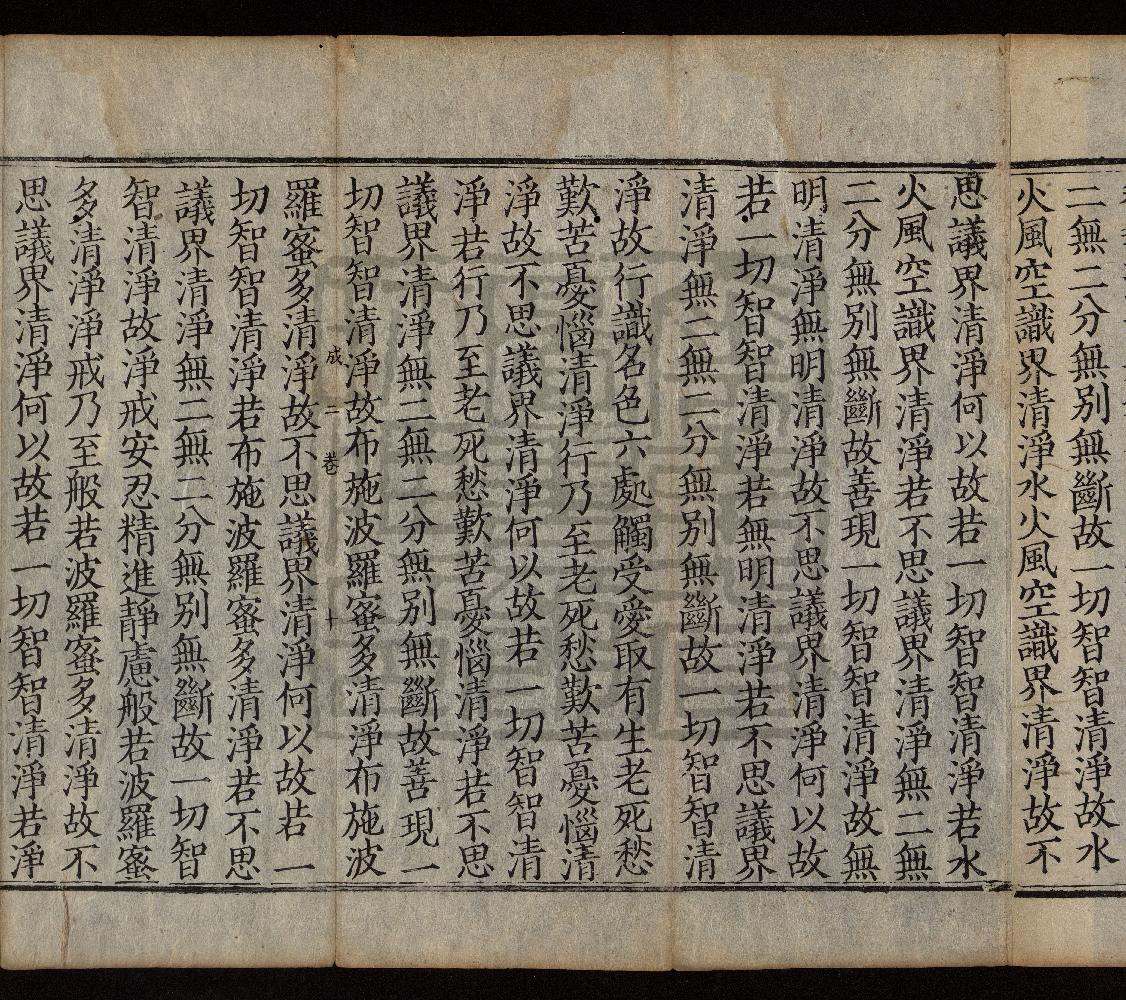 二無二分無別無斷故一切智智清淨故水
火風空識界清淨水火風空識界清淨故不
思議界清淨何以故若一切智智清淨若水
火風空識界清淨若不思議界清淨無二無
二分無別無斷故善現一切智智清淨故無
明清淨無明清淨故不思議界清淨何以故
若一切智智清淨若無明清淨若不思議界
清淨無二無二分無別無斷故一切智智清
淨故行識名色六處觸受愛取有生老死愁
歎苦憂惱清淨行乃至老死愁歎苦憂惱清
淨故不思議界清淨何以故若一切智智清
淨若行乃至老死愁歎苦憂惱清淨若不思
議界清淨無二無二分無別無斷故善現一
切智智清淨故布施波羅蜜多清淨布施波
成 二 卷 十
羅蜜多清淨故不思議界清淨何以故若一
切智智清淨若布施波羅蜜多清淨若不思
議界清淨無二無二分無別無斷故一切智
智清淨故淨戒安忍精進靜慮般若波羅蜜
多清淨淨戒乃至般若波羅蜜多清淨故不
思議界清淨何以故若一切智智清淨若淨